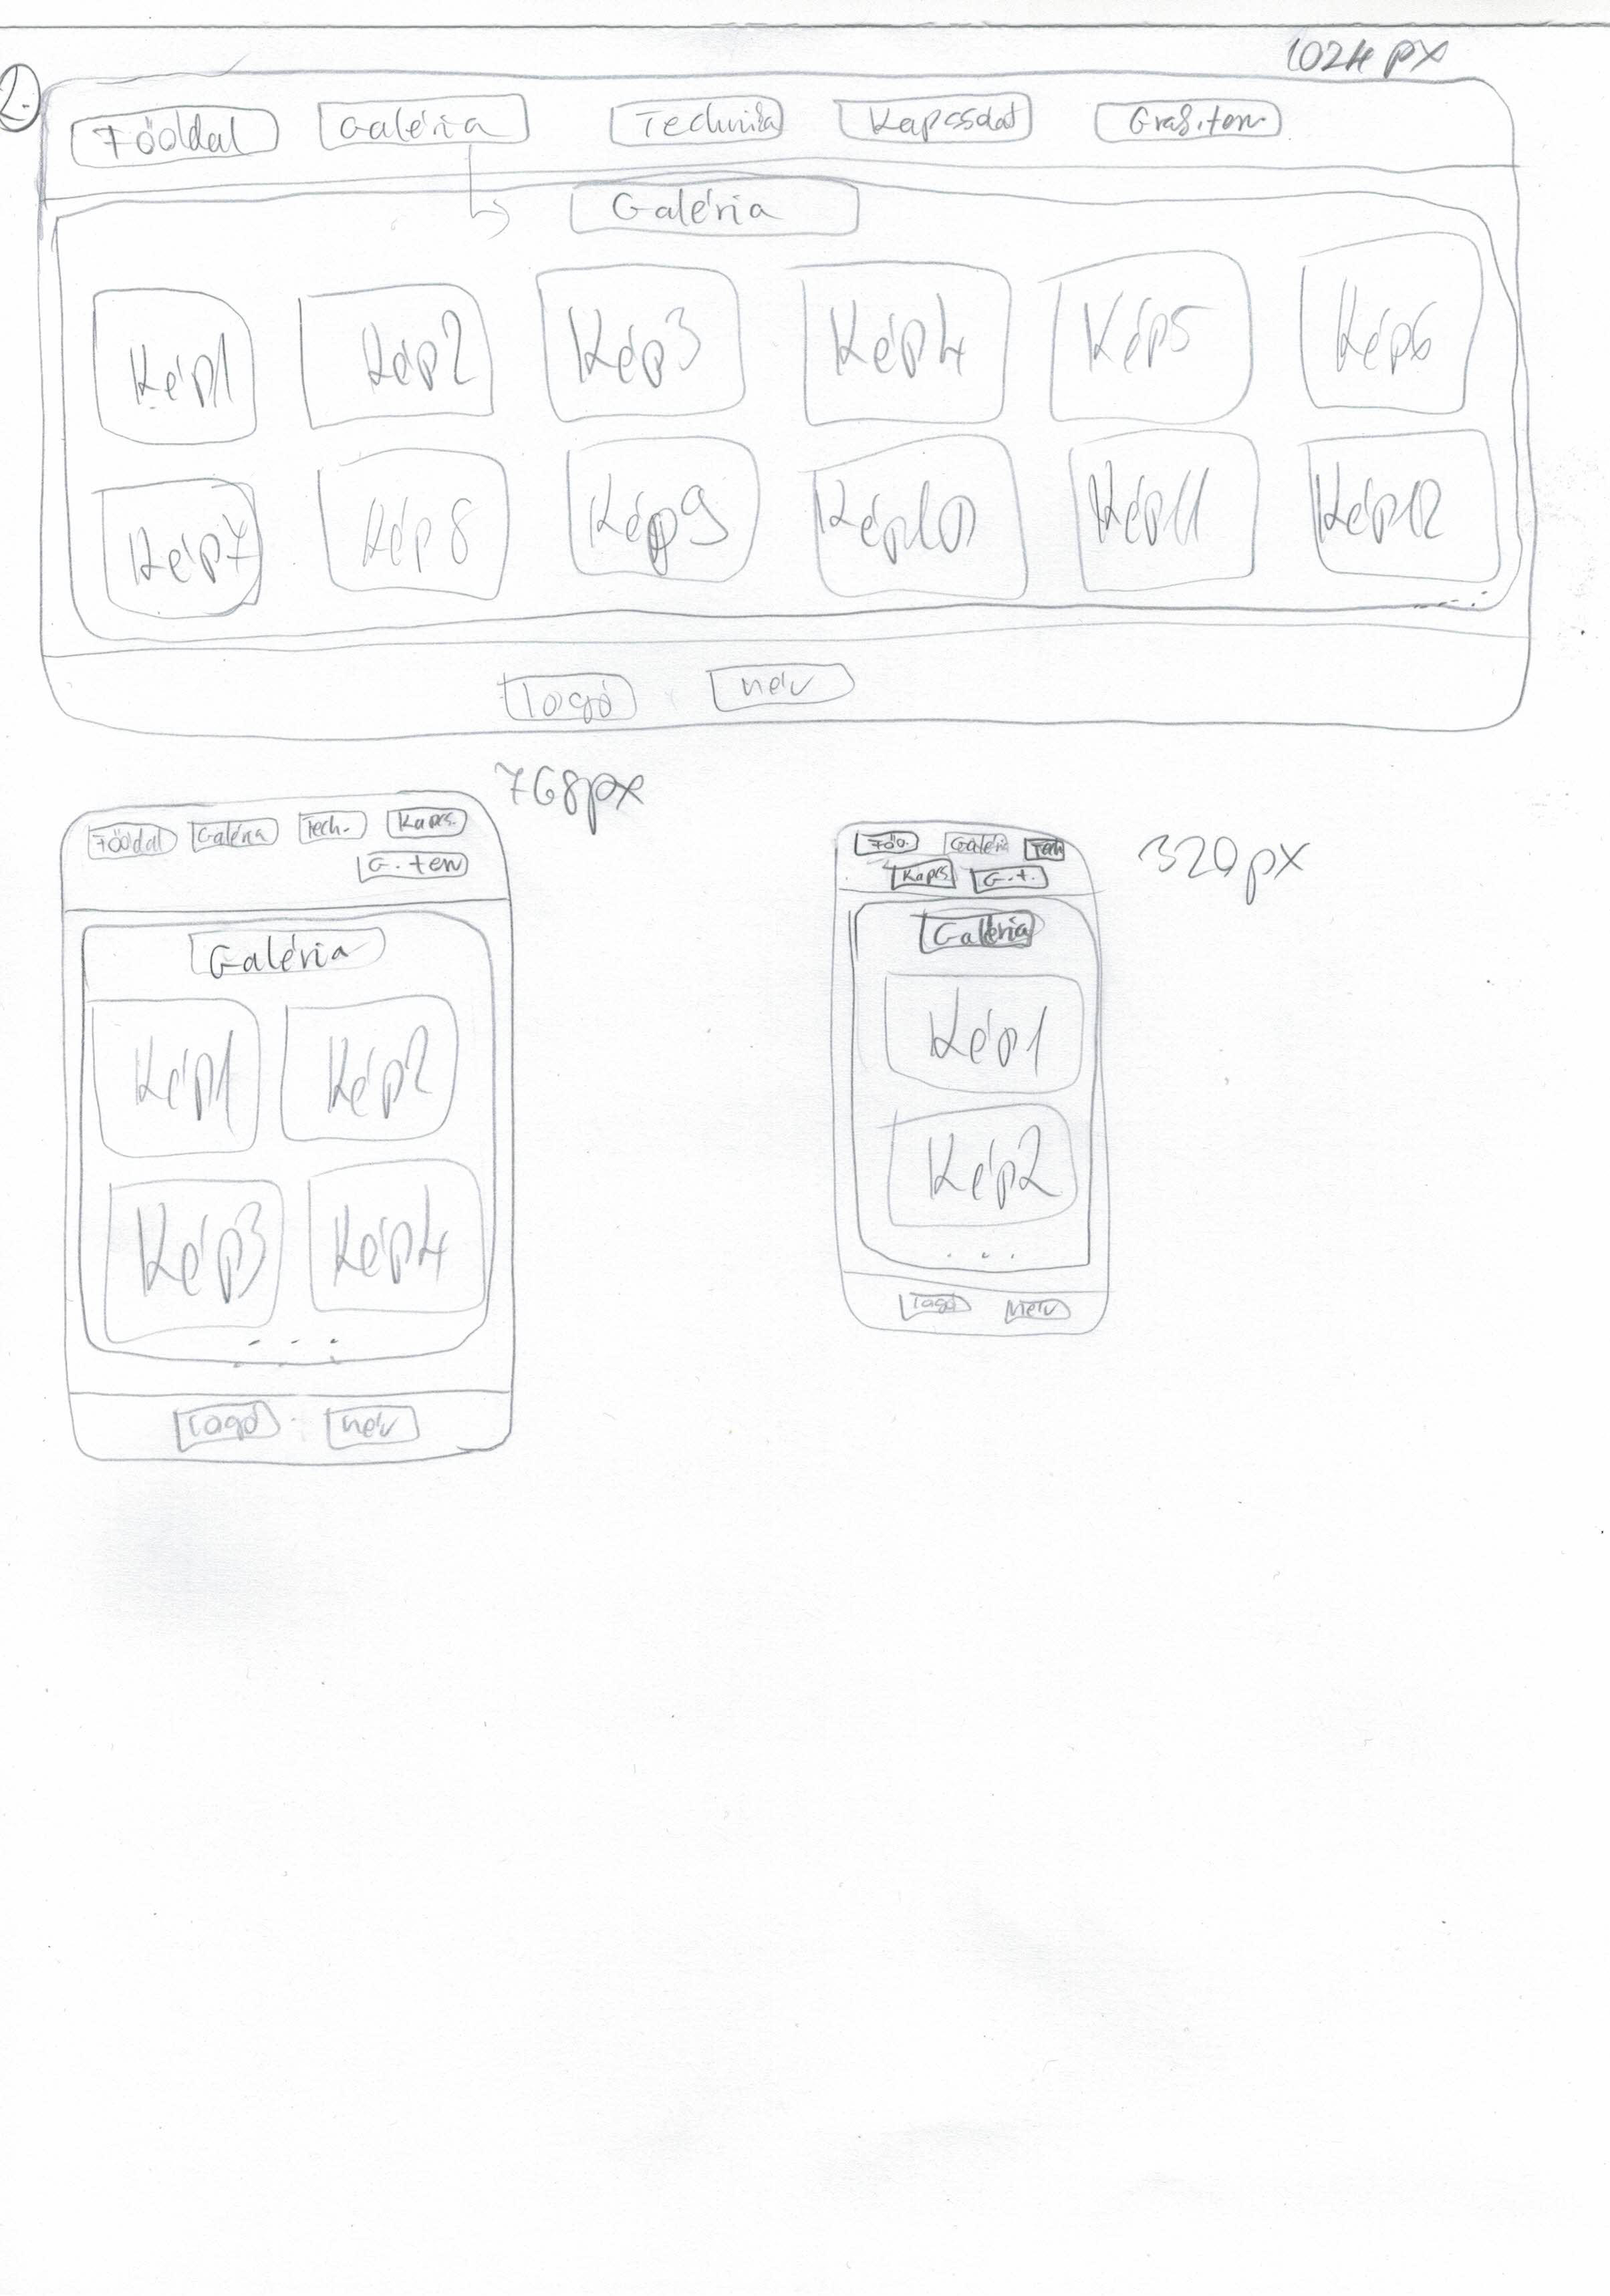 1024 px
2.
Főoldal Galéria Technika Kapcsolat Graf.terv
Galéria
Kép1 Kép2 Kép3 Kép4 Kép5 Kép6
Kép7 Kép8 Kép9 Kép10 Kép11 Kép12
Logó név
768px
Főoldal Galéria Tech. Kapcs.
G.terv
Galéria
Kép1 Kép2
Kép3 Kép4
Logó név
320px
Főo. Galéria Tech
Kapcs G.t.
Galéria
Kép1
Kép2
...
Logó Név